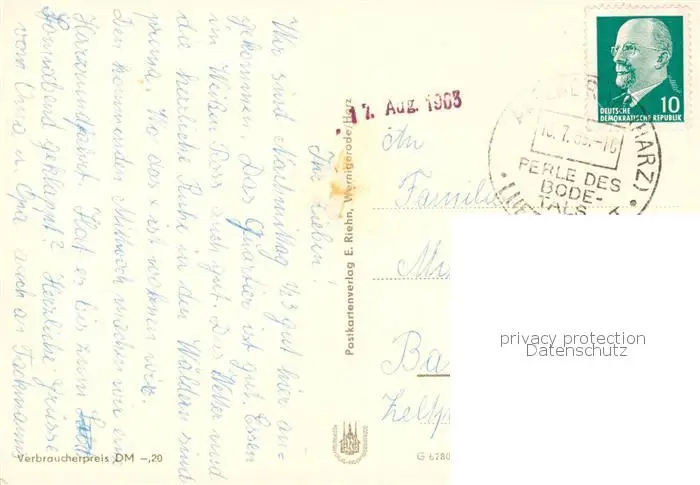 Ihr Lieben!
Wir sind Nachmittag ½3 gut hier an-
gekommen. Das Quartier ist gut. Essen
im Weißen Ross auch gut. Das Wetter und
die herrliche Ruhe in den Wäldern sind
prima. Wo das ist wohnen wir.
Den kommenden Mittwoch machen wir eine
Harzrundfahrt. Hat es bis zum
Sonnabend geklappt? Herzliche Grüsse
von Oma u. Opa auch an
Verbraucherpreis DM -,20
Postkartenverlag E. Riehn, Wernigerode/Harz
17. Aug. 1963
An
Familie
Ba
Zeltp
G 6280
DEUTSCHE
DEMOKRATISCHE REPUBLIK
10
(HARZ)
PERLE DES
BODE-
TALS
privacy protection
Datenschutz